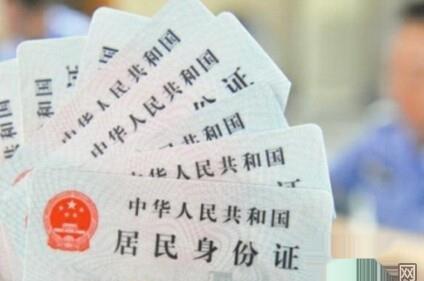 中华人民共和国
中华人民共和国
份证
中华人民共和国
中华人民共和国
中华人民共和国
居民身份证
网